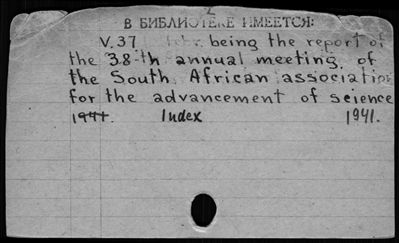 2
В БИБЛИОТЕКЕ ИМЕЕТСЯ:
V.37 being the report of
the 38-th annual meeting of
the South African association
for the advancement of science
1941. Index 1941.